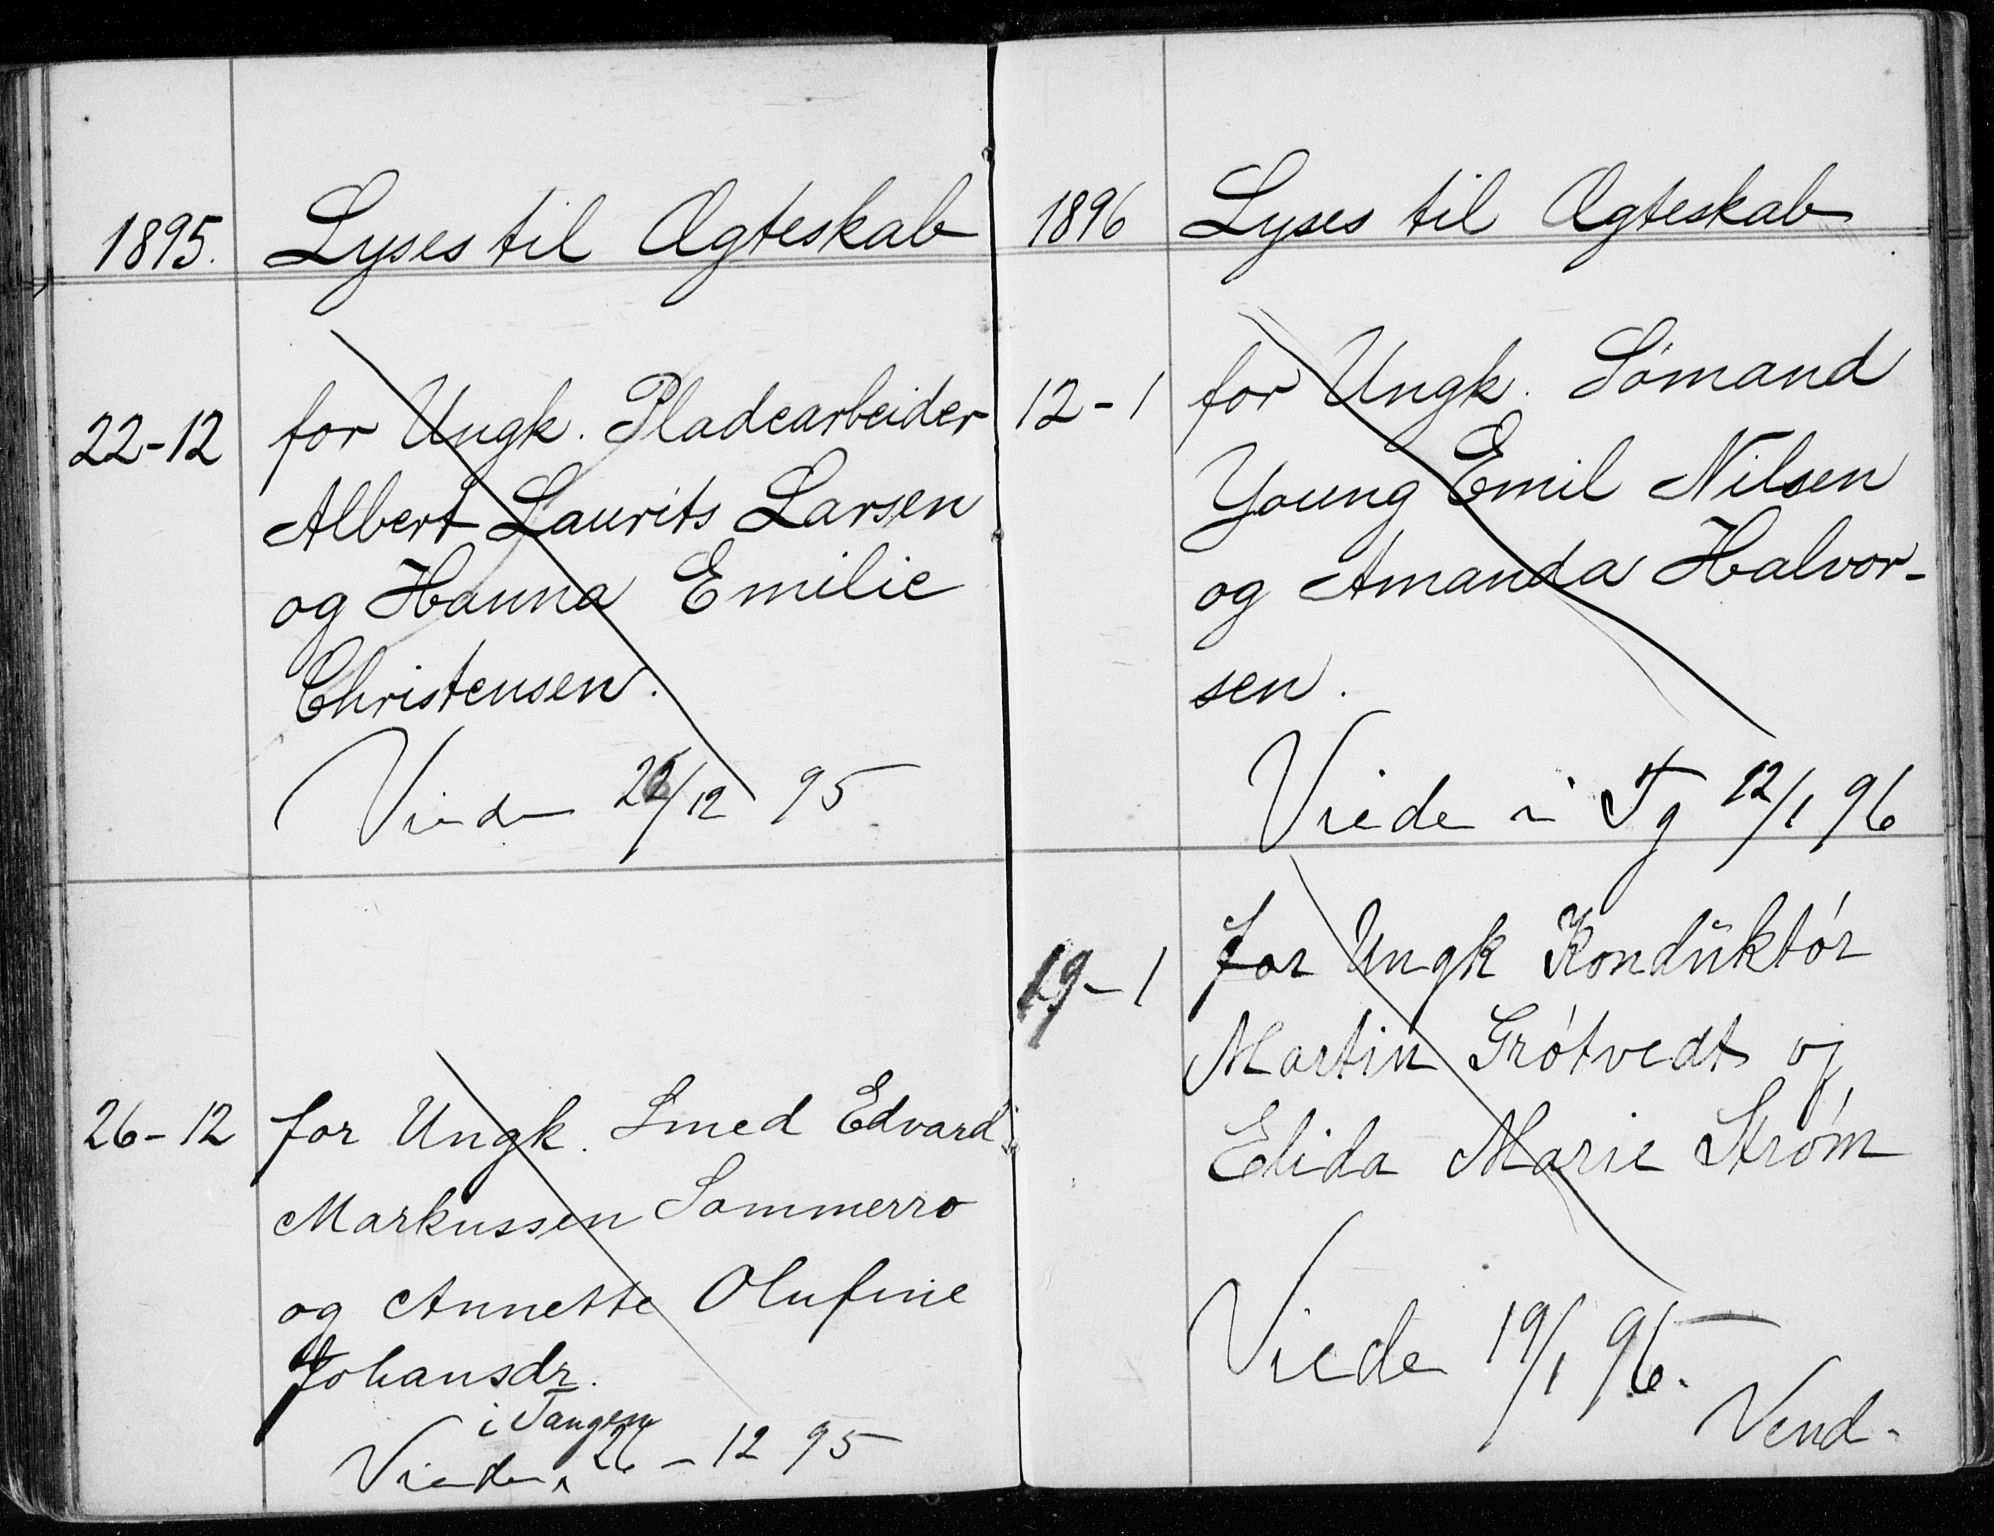 1895. Lyses til Ægteskab
22-12 for Ungk. Pladearbeider
Albert Laurits Larsen
og Hanna Emilie
Christensen.
Viede /12 95
26-12 for Ungk. Smed Edvard
Markussen Sommerro
og Annette Olufine
Johansdr.
i Tangen
Viede 26-12 95
1896 Lyses til Ægteskab
12-1 for Ungk. Sømand
Young Emil Nilsen
og Amanda Halvor-
sen.
Viede i Tg 12/1 96
19-1 for Ungk Konduktør
Martin Grøtvedt og
Elida Marie Strøm
Viede 19/1 96.
Vend.